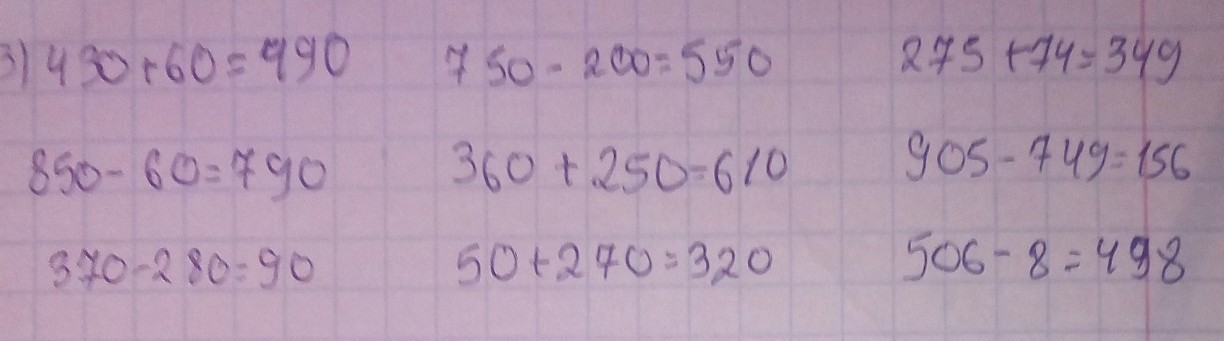 3) 430+60=490 750-200=550 275+74=349
850-60=790 360+250=610 905-749=156
370-280=90 50+270=320 506-8=498